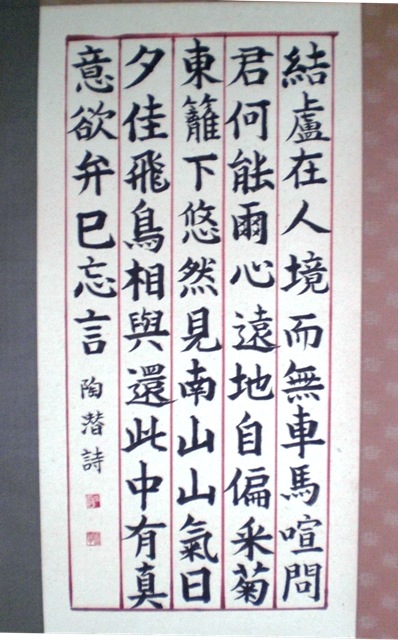 結廬在人境而無車馬喧問
君何能爾心遠地自偏采菊
東籬下悠然見南山山氣日
夕佳飛鳥相與還此中有真
意欲弁已忘言
陶潛詩